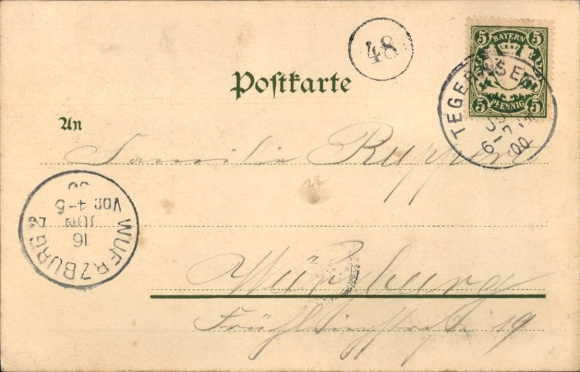 48
5 BAYERN 5
5 PFENNIG 5
TEGERNSEE
00
Postkarte
An
Familie Ruppert
WUERZBURG 2
16
JUN
VOR 4-5
00
Würzburg
Frühlingstraße 19